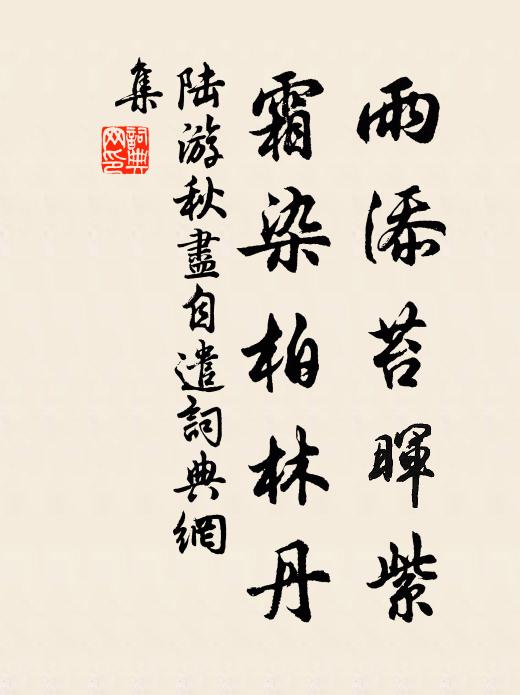 雨添苔暈紫
霜染柏林丹
陆游秋盡自遣詞典網
集
詞典
网印